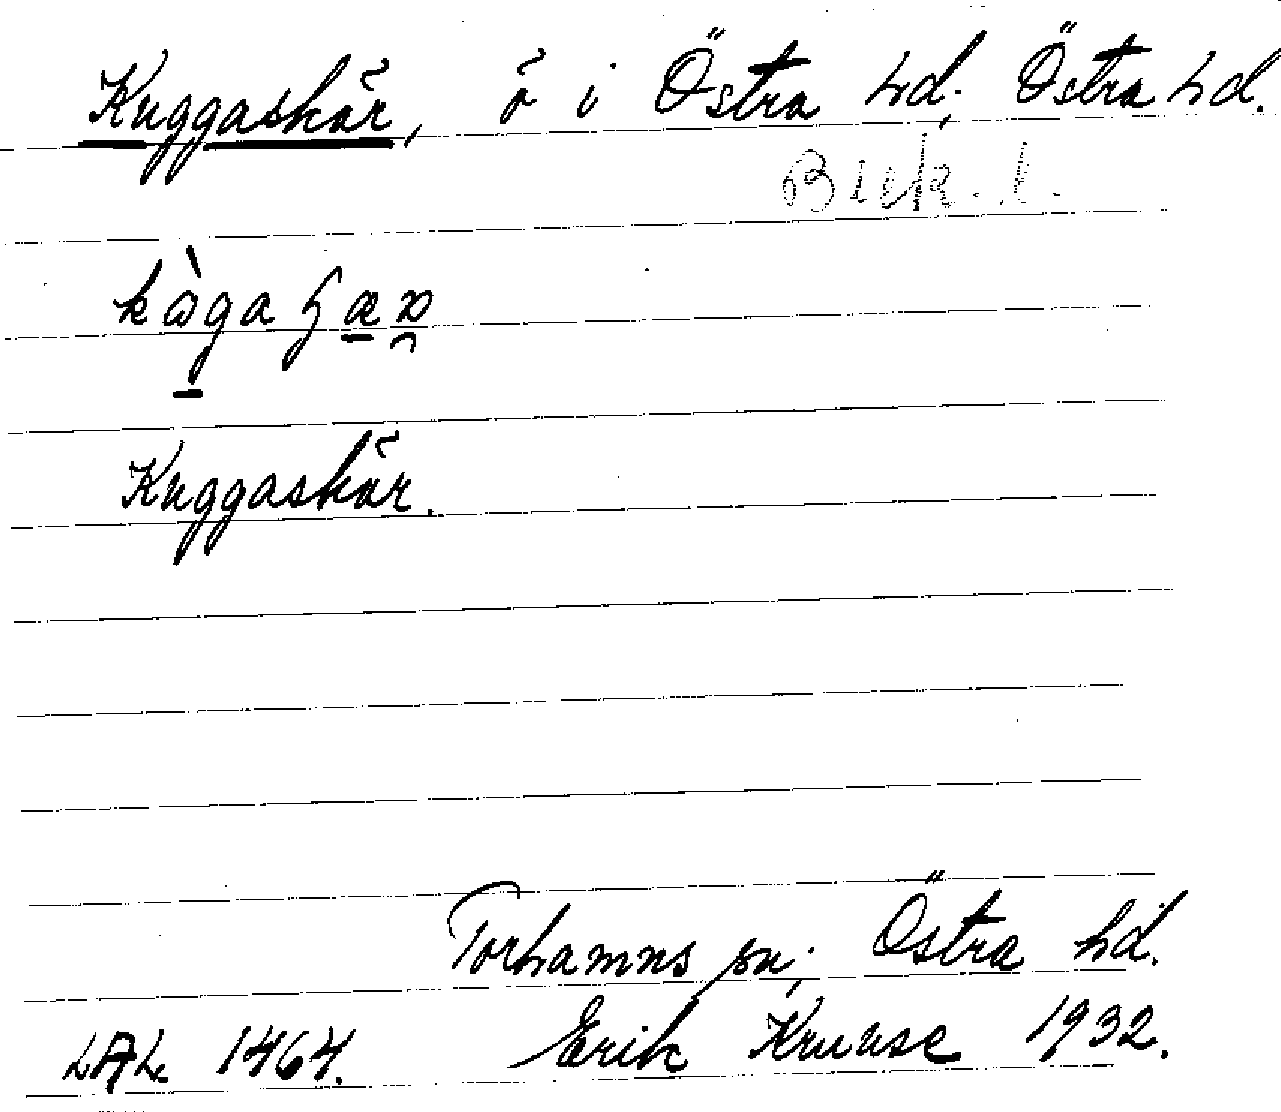 Kuggaskär, ö i Östra hd, Östra hd.
Blek. l.
Kuggaskär.
Torhamns sn, Östra hd.
LAL 1464. Erik Kruuse 1932.